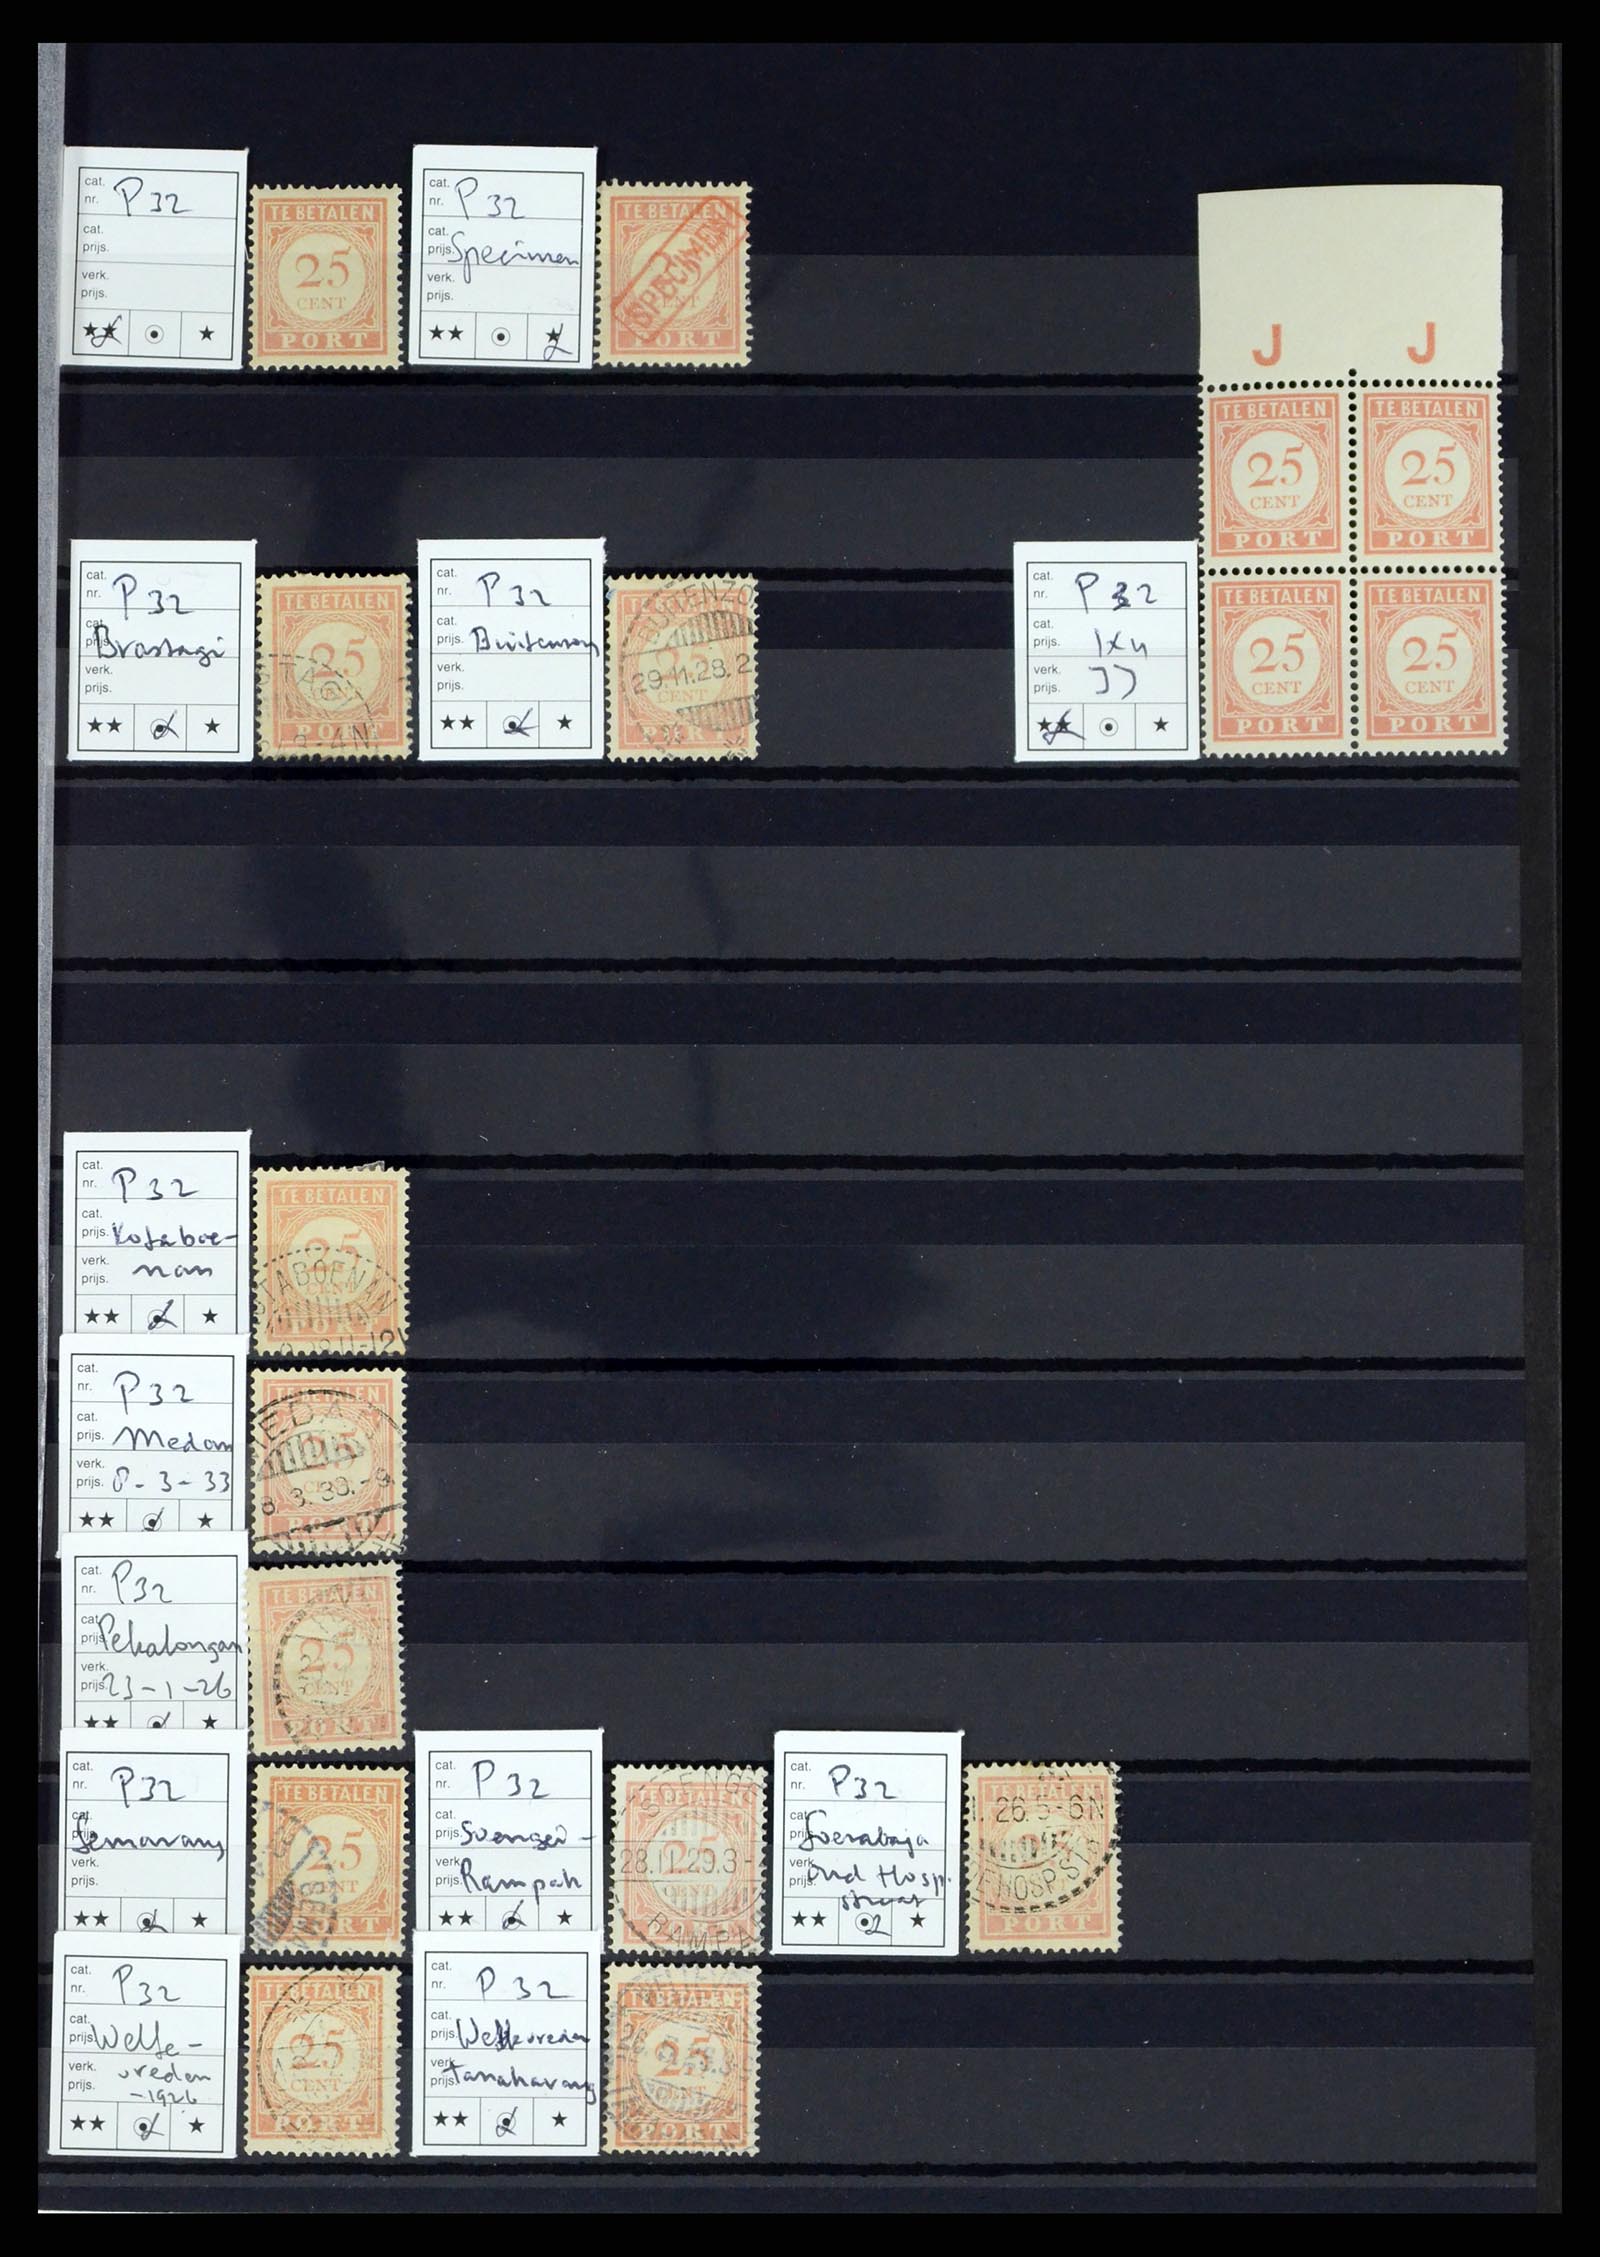 cat.
nr. P 32
cat.
prijs.
verk.
prijs.
★★ ★
TE BETALEN
25
CENT
PORT
cat.
nr. P 32
cat.
prijs. Specimen
verk.
prijs.
★★ ★
TE BETALEN
SPECIMEN
PORT
J J
TE BETALEN
25
CENT
PORT
TE BETALEN
25
CENT
PORT
TE BETALEN
25
CENT
PORT
TE BETALEN
25
CENT
PORT
cat.
nr. P 32
cat.
prijs. Brastagi
verk.
prijs.
★★ ★
TE BETALEN
25
cat.
nr. P 32
cat.
prijs.
verk.
prijs.
★★ ★
BUITENZO
29.11.28.2
CENT
cat.
nr. P 32
cat.
prijs. 1x4
verk.
prijs. JJ
★★ ★
cat.
nr. P 32
cat.
prijs. Kotaboe-
verk.
prijs. nan
★★ ★
TE BETALEN
25
TABOENAN
PORT
cat.
nr. P 32
cat.
prijs. Medan
verk.
prijs. 8-3-33
★★ ★
TE BETALEN
25
cat.
nr. P32
cat.
prijs. Pekalongan
verk.
prijs. 23-1-26
★★ ★
TE BETALEN
25
CENT
PORT
cat.
nr. P32
cat.
prijs. Semarang
verk.
prijs.
★★ ★
TE BETALEN
25
CENT
PORT
SEMA
cat.
nr. P 32
cat.
prijs. Soengei-
verk.
prijs. Rampah
★★ ★
SOENGE
TE BETALEN
25
28.11.29.3-
CENT
RAMPA
cat.
nr. P32
cat.
prijs. Soerabaja
verk.
prijs. oud Hosp.
straat
★★ ★
TE BETALEN
26.5-6N
EHOSPST
PORT
cat.
nr. P32
cat.
prijs. Welte-
verk. vreden
prijs. -1926
★★ ★
TE BETALEN
25
CENT
PORT
cat.
nr. P 32
cat.
prijs. Weltevreden
verk.
prijs. tanahabang
★★ ★
TE BETALEN
25
CENT
PORT